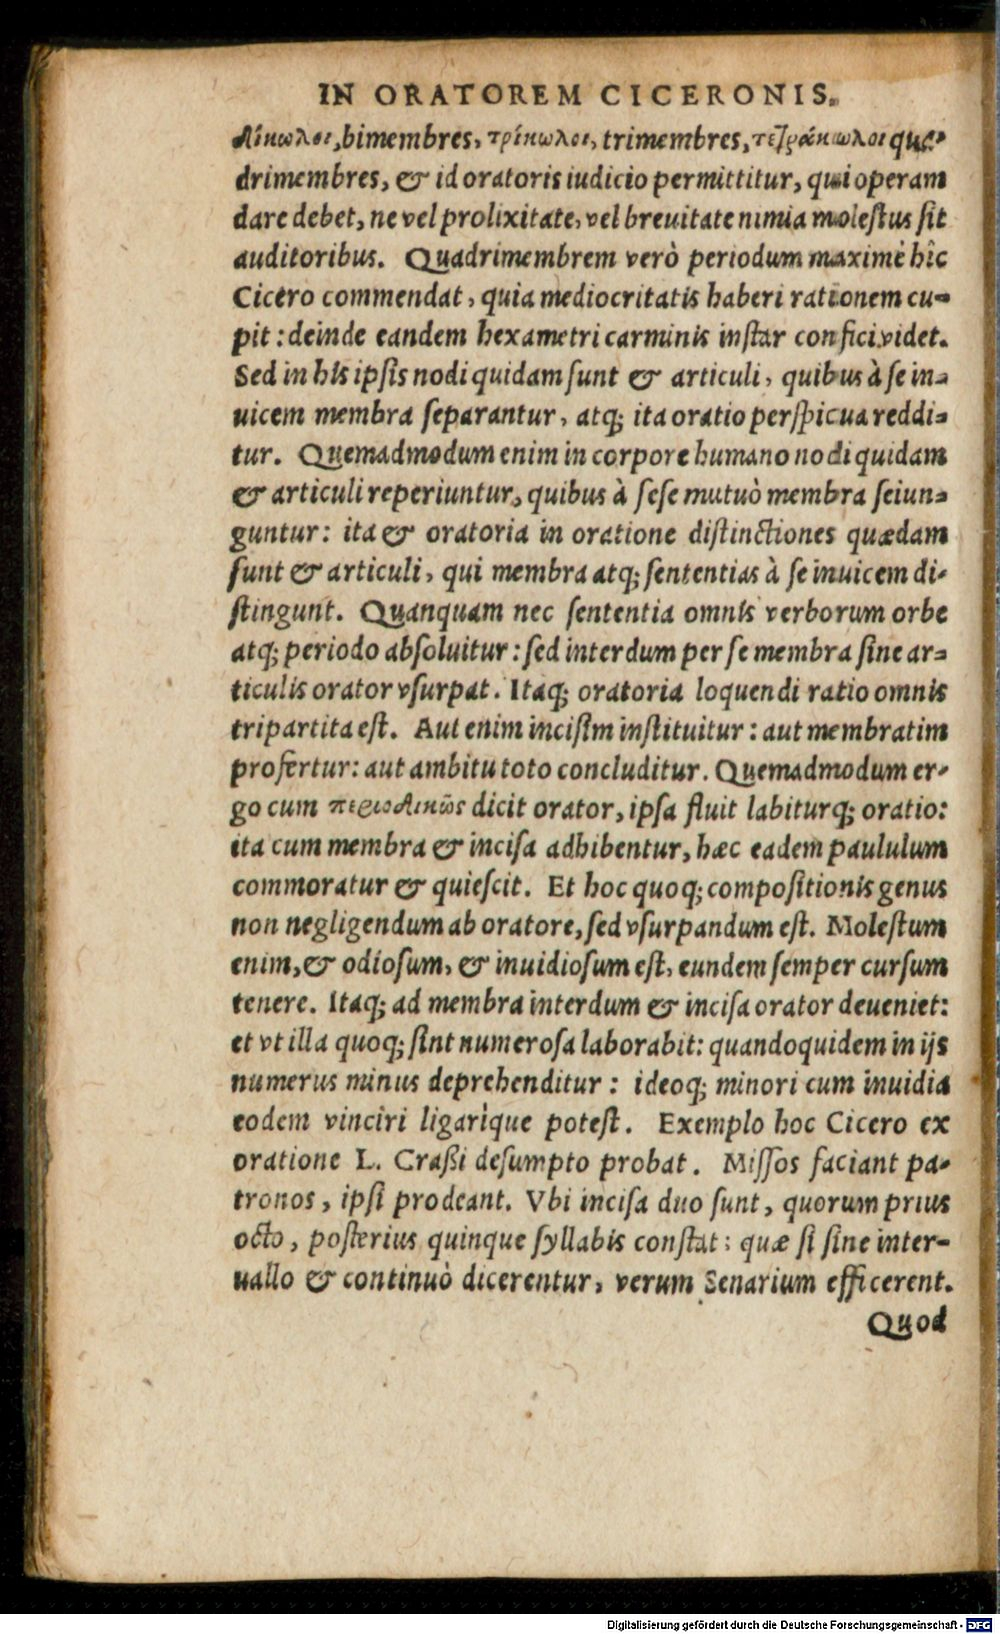 IN ORATOREM CICERONIS.
δίκωλοι, bimembres, τρίκωλοι, trimembres, τετράκωλοι qua-
drimembres, & id oratoris iudicio permittitur, qui operam
dare debet, ne vel prolixitate, vel breuitate nimia molestus sit
auditoribus. Quadrimembrem verò periodum maximè hîc
Cicero commendat, quia mediocritatis haberi rationem cu-
pit: deinde eandem hexametri carminis instar confici videt.
Sed in his ipsis nodi quidam sunt & articuli, quibus à se in-
uicem membra separantur, atq; ita oratio perspicua reddi-
tur. Quemadmodum enim in corpore humano nodi quidam
& articuli reperiuntur, quibus à sese mutuò membra seiun-
guntur: ita & oratoria in oratione distinctiones quædam
sunt & articuli, qui membra atq; sententias à se inuicem di-
stingunt. Quanquam nec sententia omnis verborum orbe
atq; periodo absoluitur: sed interdum per se membra sine ar-
ticulis orator vsurpat. Itaq; oratoria loquendi ratio omnis
tripartita est. Aut enim incisim instituitur: aut membratim
profertur: aut ambitu toto concluditur. Quemadmodum er-
go cum περιοδικῶς dicit orator, ipsa fluit labiturq; oratio:
ita cum membra & incisa adhibentur, hæc eadem paululum
commoratur & quiescit. Et hoc quoq; compositionis genus
non negligendum ab oratore, sed vsurpandum est. Molestum
enim, & odiosum, & inuidiosum est, eundem semper cursum
tenere. Itaq; ad membra interdum & incisa orator deueniet:
et vt illa quoq; sint numerosa laborabit: quandoquidem in ijs
numerus minus deprehenditur: ideoq; minori cum inuidia
eodem vinciri ligarìque potest. Exemplo hoc Cicero ex
oratione L. Craßi desumpto probat. Missos faciant pa-
tronos, ipsi prodeant. Vbi incisa duo sunt, quorum prius
octo, posterius quinque syllabis constat: quæ si sine inter-
uallo & continuò dicerentur, verum Senarium efficerent.
Quod
Digitalisierung gefördert durch die Deutsche Forschungsgemeinschaft - DFG